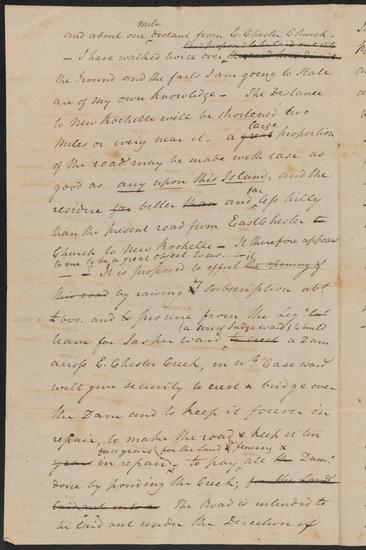 mile
and about one distant from E. Chester Church -
- I have walked twice over
the Ground and the facts I am going to State
are of my own knowledge - The Distance
to New Rochelle will be shortened two
miles or every near it - a great large proportion
of the road may be made with ease as
good as any upon this Island, and the
residue far better than and far less hilly
than the present road from East Chester to
Church to New Rochelle - It therefore appears
to me to be a great object to us. -
- It is proposed to effect it the opening of
this road by raising by subscription abt.
£600. and to procure from the Leg:
(a son of Judge ward) to build
leave for Jasper Ward to erect a Dam
across E. Chester Creek, in wh. Case ward
will give security to erect a bridge over
the Dam and to keep it forever in
repair, to make the road & keep it ten
for 11 years (for the Land & fencing &
years in repair - to pay all the Dams.
done by ponding the Creek; for the Land
laid out into a The Road is intended to
be laid out under the Direction of